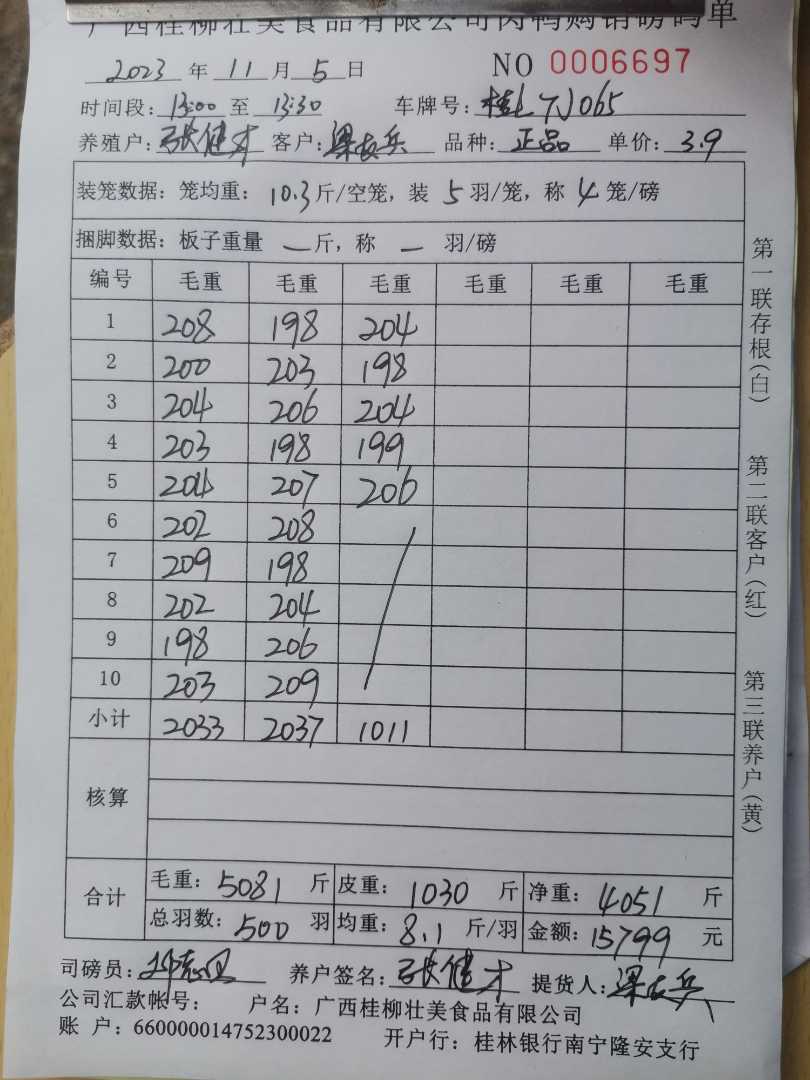 广西桂柳壮美食品有限公司肉鸭购销磅码单
2023 年 11 月 5 日 NO 0006697
时间段: 13:00 至 13:30 车牌号: 065
养殖户: 张健才 客户: 梁 兵 品种: 正品 单价: 3.9
装笼数据: 笼均重: 10.3 斤/空笼, 装 5 羽/笼, 称 4 笼/磅
捆脚数据: 板子重量 — 斤, 称 — 羽/磅
编号 毛重 毛重 毛重 毛重 毛重 毛重
1 208 198 204
2 200 203 198
3 204 206 204
4 203 198 199
5 204 207 206
6 202 208
7 209 198
8 202 204
9 198 206
10 203 209
小计 2033 2037 1011
核算
合计 毛重: 5081 斤 皮重: 1030 斤 净重: 4051 斤
总羽数: 500 羽 均重: 8.1 斤/羽 金额: 15799 元
司磅员: 养户签名: 张健才 提货人: 梁 兵
公司汇款帐号: 户名: 广西桂柳壮美食品有限公司
账 户: 660000014752300022 开户行: 桂林银行南宁隆安支行
第一联存根(白)
第二联客户(红)
第三联养户(黄)